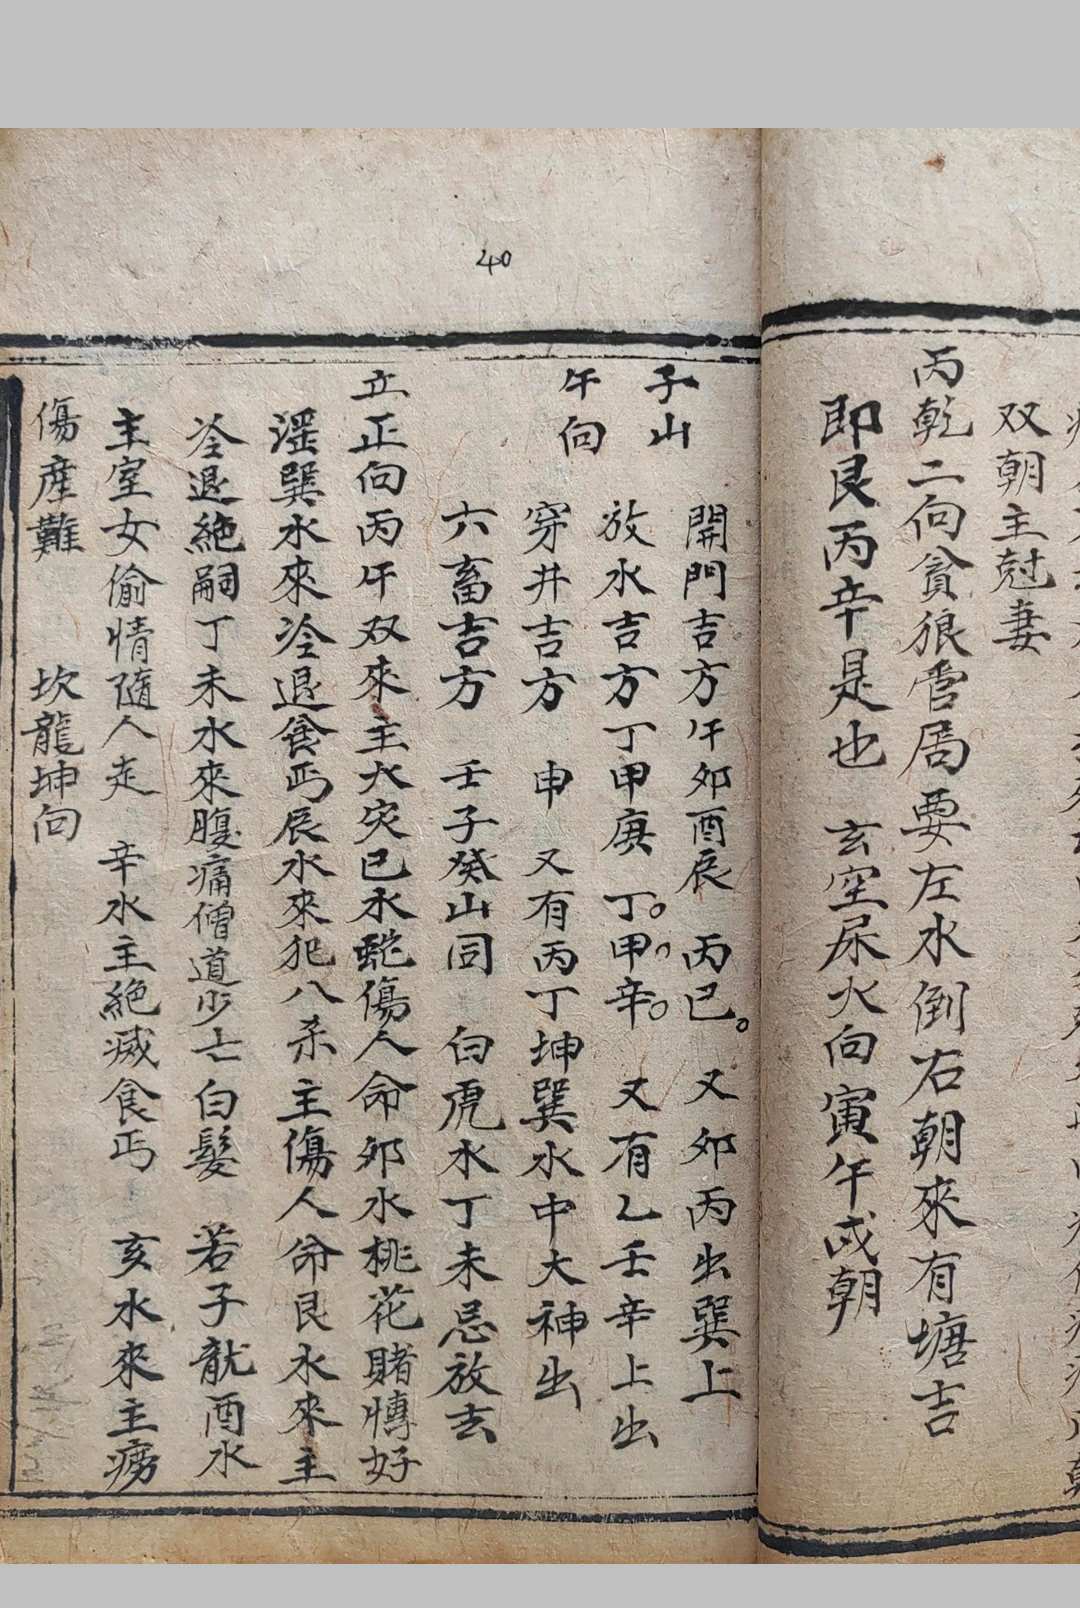 双朝主尅妻
丙乾二向貧狼管局要左水倒右朝來有塘吉
即艮丙辛是也 玄空尿火向寅午戌朝
40
子山
午向
開門吉方午卯酉辰 丙巳。又卯丙出巽上
放水吉方丁甲庚 丁。甲、辛。又有乙壬辛上出
穿井吉方 申 又有丙丁坤巽水中大神出
六畜吉方 壬子癸山同 白虎水丁未忌放去
立正向丙午双來主火灾巳水蛇傷人命卯水桃花賭愽好
滛巽水來冷退食丐辰水來犯八杀主傷人命艮水來主
冷退絶嗣丁未水來腹痛僧道少亡白髮 若子龍酉水
主室女偷情隨人走 辛水主絶滅食丐 亥水來主癆
傷産難 坎龍坤向